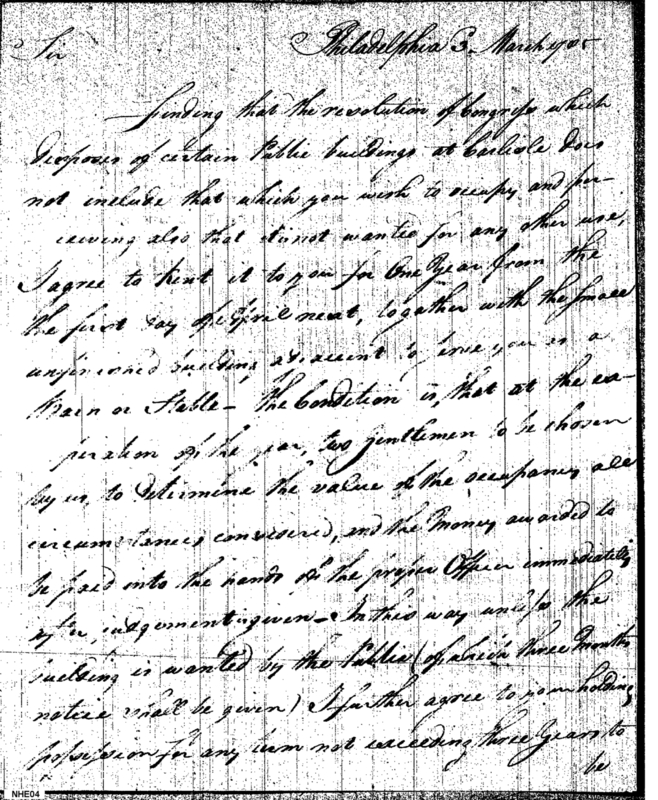 Sir Philadelphia 3 March 1785
Finding that the resolution of Congress which
disposes of certain Public buildings at Carlisle does
not include that which you wish to occupy and per-
ceiving also that it is not wanted for any other use,
I agree to Rent it to you for One Year from the
the first day of April next, together with the small
unfinished building adjacent to serve you as a
Barn or Stable – the Condition is, that at the ex-
piration of the year, two gentlemen to be chosen
by us, to determine the value of the occupancy all
circumstances considered, and the Money awarded to
be paid into the hands of the proper Officer immediately
after judgement is given – In this way unless the
building is wanted by the Public (of which three Months
notice shall be given) I further agree to your holding
possession for any term not exceeding three Years to
be
NHE04